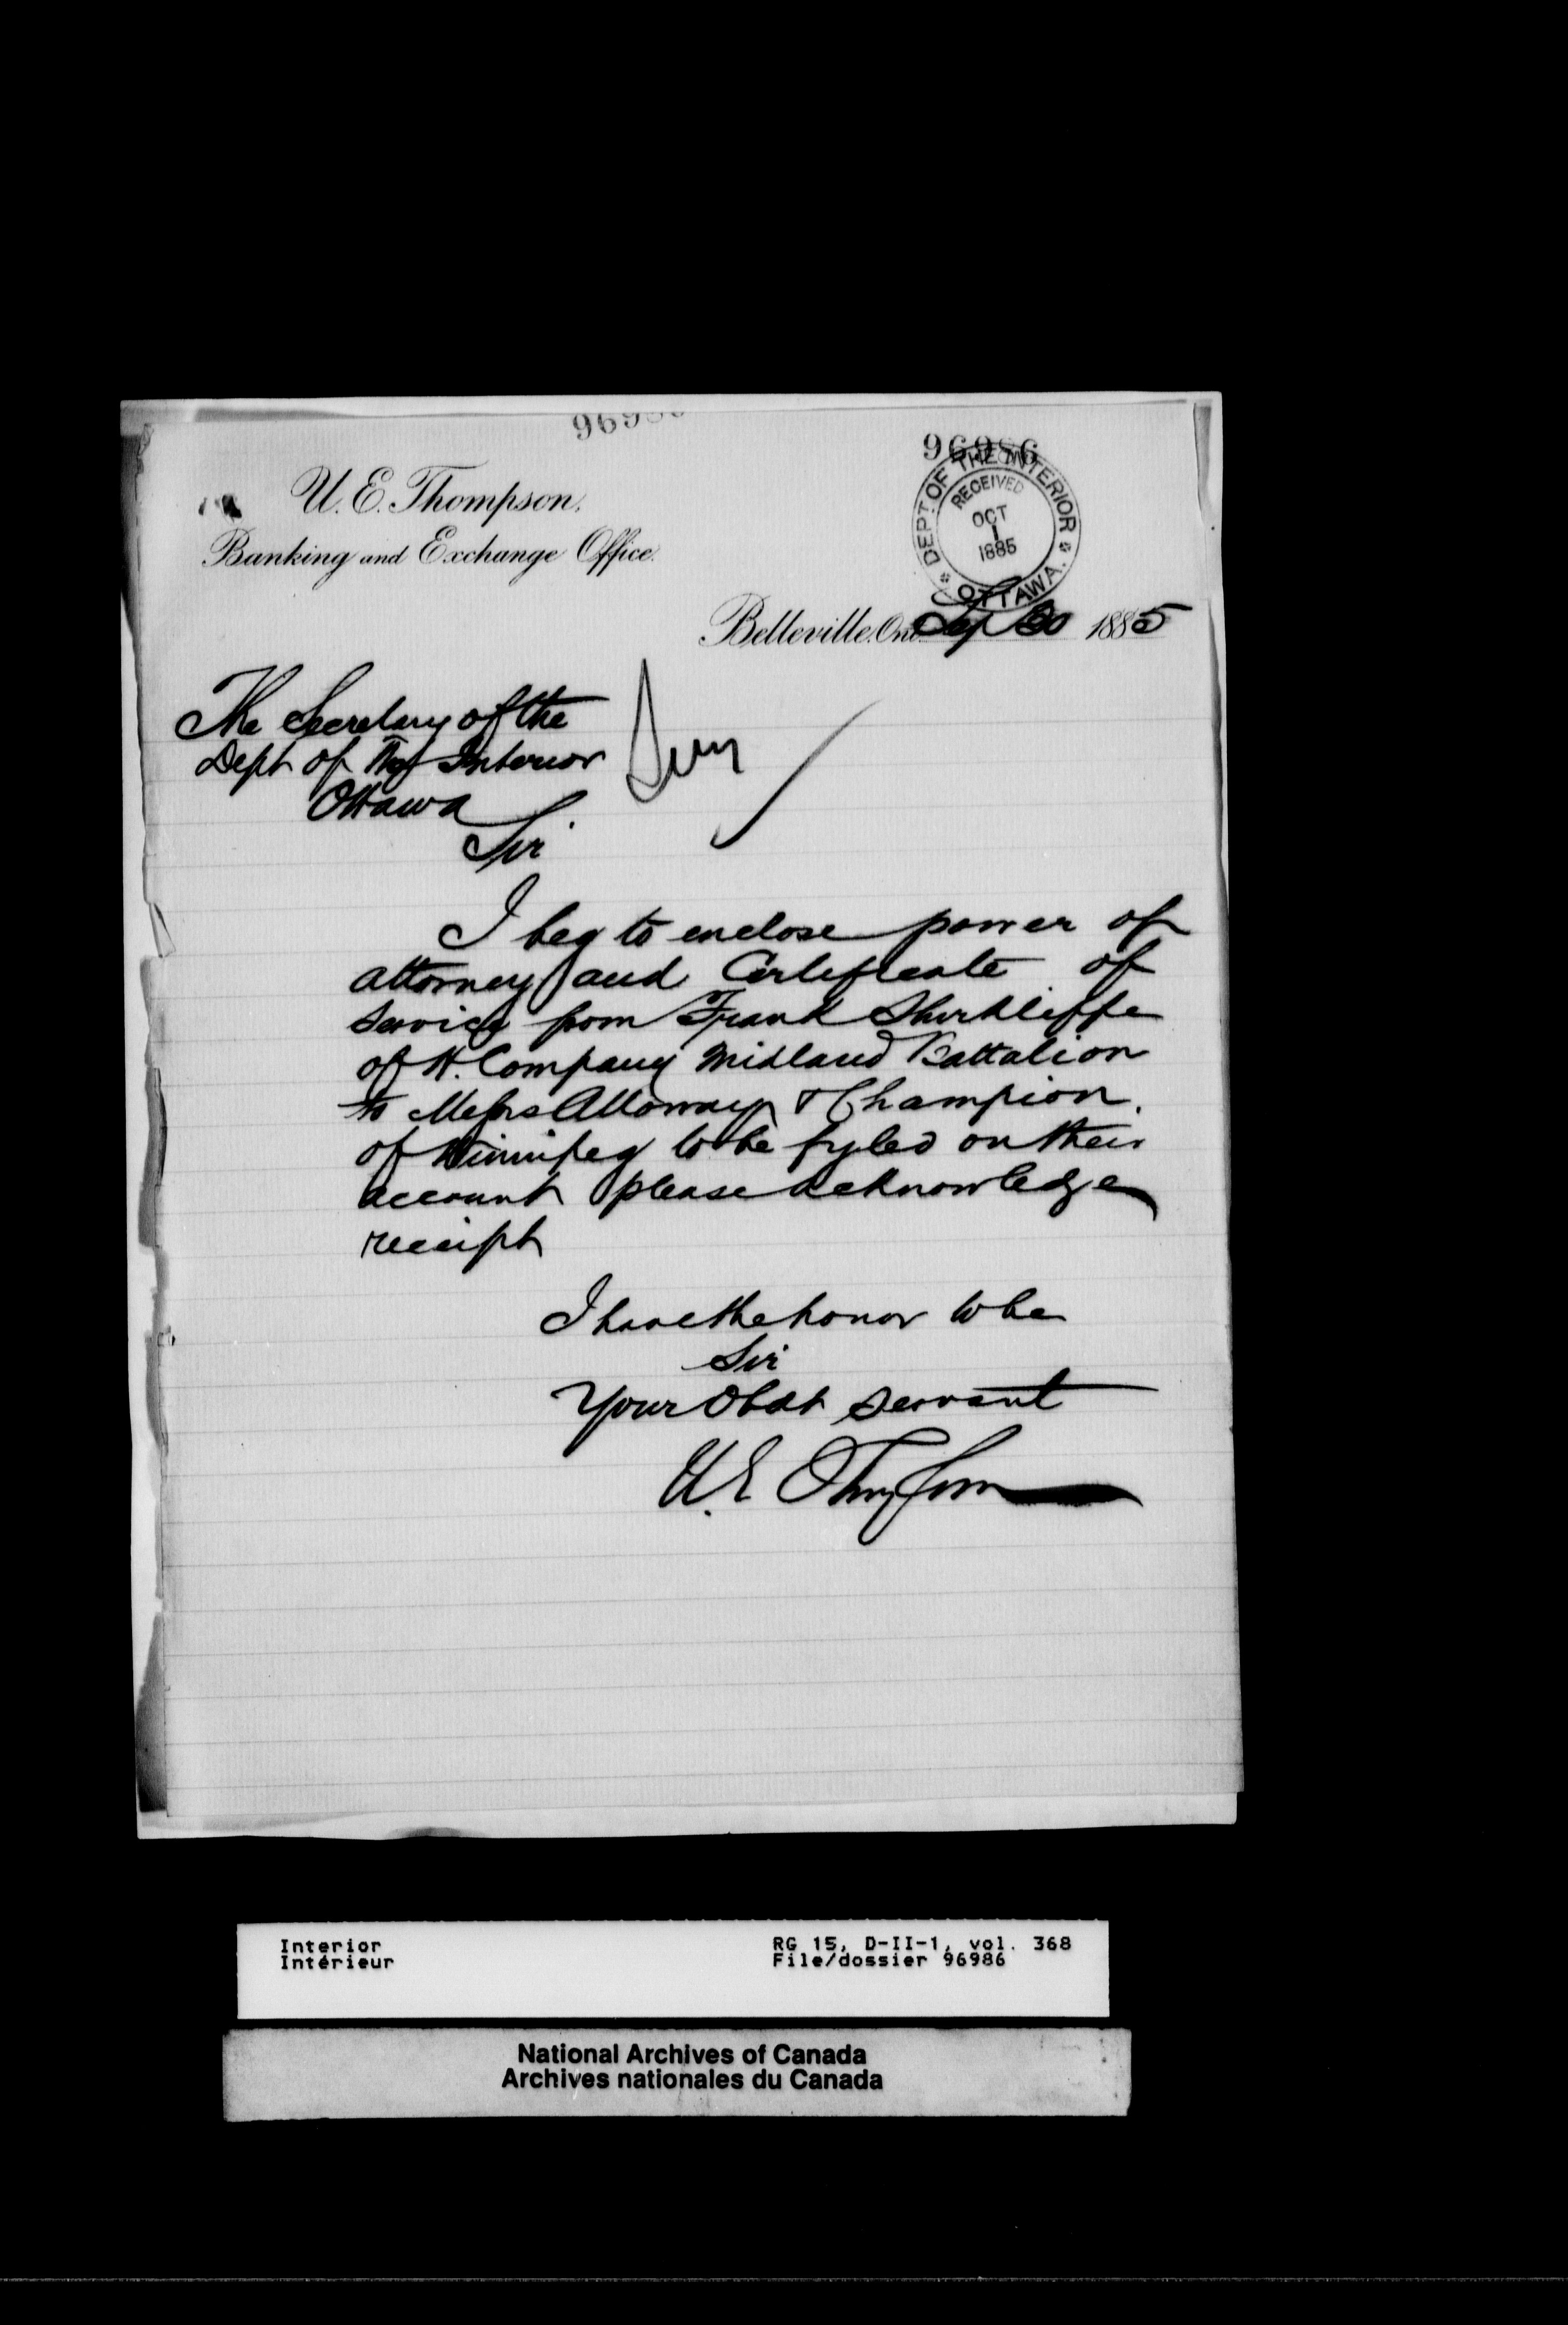 96986
96986
DEPT. OF THE INTERIOR
RECEIVED
OCT
1
1885
OTTAWA.
U. E. Thompson,
Banking and Exchange Office.
Belleville, Ont. Sep 30 1885
The Secretary of the
Dept of The Interior
Ottawa
Sir
I beg to enclose power of
attorney and Certificate of
Service from Frank Shirkliffe
of H. Company Midland Battalion
to Messrs Alloway & Champion.
of Winnipeg to be fyled on their
account please acknowledge
receipt
I have the honor to be
Sir
Your Obdt servant
U. E Thompson
Interior
Intérieur
RG 15, D-II-1, vol. 368
File/dossier 96986
National Archives of Canada
Archives nationales du Canada